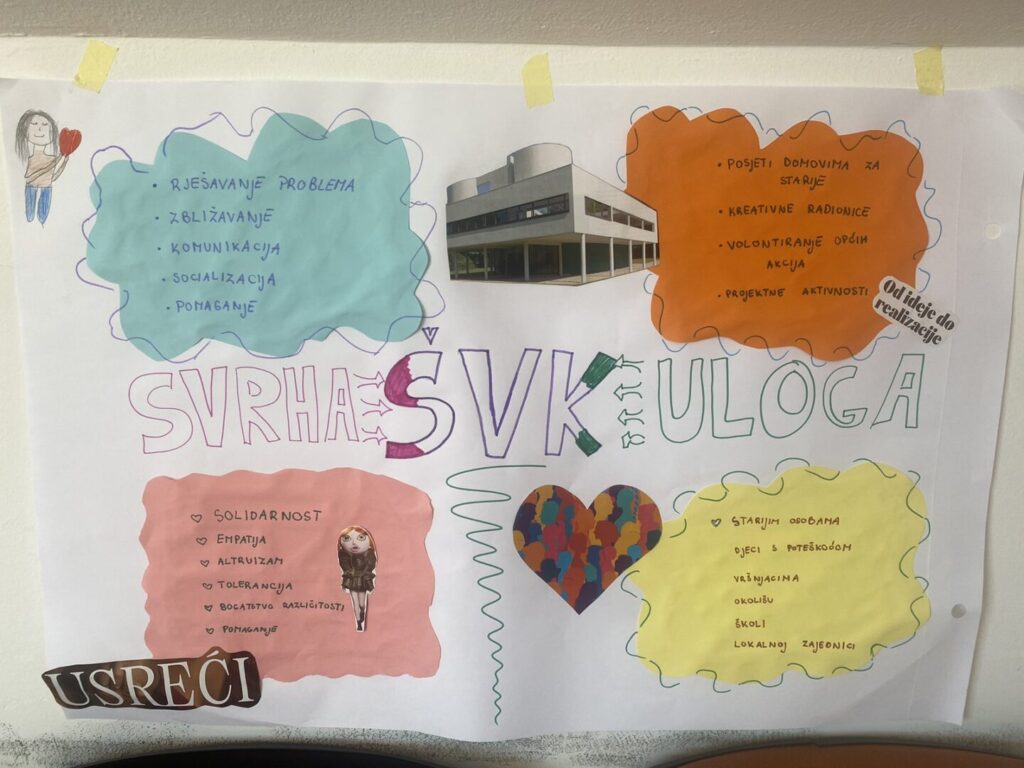 • RJEŠAVANJE PROBLEMA
• ZBLIŽAVANJE
• KOMUNIKACIJA
• SOCIALIZACIJA
• POMAGANJE
• POSJETI DOMOVIMA ZA
STARIJE
• KREATIVNE RADIONICE
• VOLONTIRANJE OPĆIH
AKCIJA
• PROJEKTNE AKTIVNOSTI
Od ideje do
realizacije
SVRHA ŠVK ULOGA
♡ SOLIDARNOST
♡ EMPATIJA
♡ ALTRUIZAM
♡ TOLERANCIJA
♡ BOGATSTVO RAZLIČITOSTI
♡ POMAGANJE
USREĆI
♡ STARIJIM OSOBAMA
DJECI S POTEŠKOĆOM
VRŠNJACIMA
OKOLIŠU
ŠKOLI
LOKALNOJ ZAJEDNICI